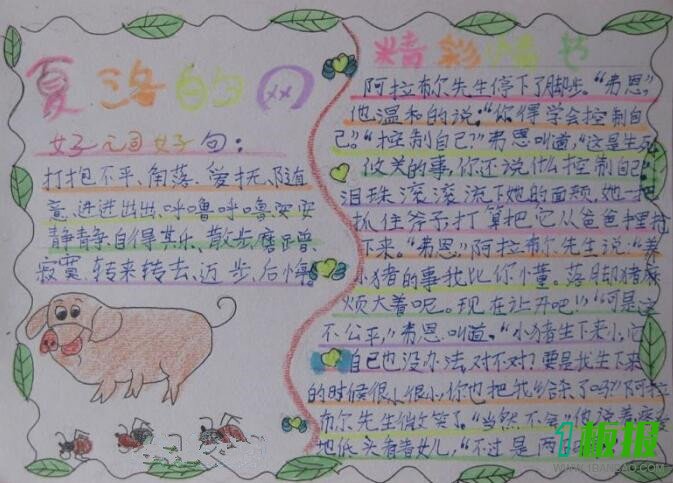 夏洛的网
好词好句：
打抱不平、角落、爱抚、随
意、进进出出、呼噜呼噜、安安
静静、自得其乐、散步、磨蹭
寂寞、转来转去、迈步、后悔。
精彩情节
阿拉布尔先生停下了脚步。“弗恩，”
他温和的说：“你得学会控制自
己。”“控制自己？”弗恩叫道，“这是生死
攸关的事，你还说什么控制自己”
泪珠滚滚流下她的面颊，她一把
抓住斧子，打算把它从爸爸手里抢
下来。“弗恩，”阿拉布尔先生说：“养
小猪的事我比你懂。落脚猪麻
烦大着呢。现在让开吧！”“可是这
不公平，”弗恩叫道。“小猪生下来小，它
自己也没办法，对不对？要是我生下来
的时候很小很小，你也把我给杀了吗？”阿拉
布尔先生微笑了。“当然不会，”他说着疼
地低头看看女儿，“不过是两
1板报
WWW.1BANBAO.COM